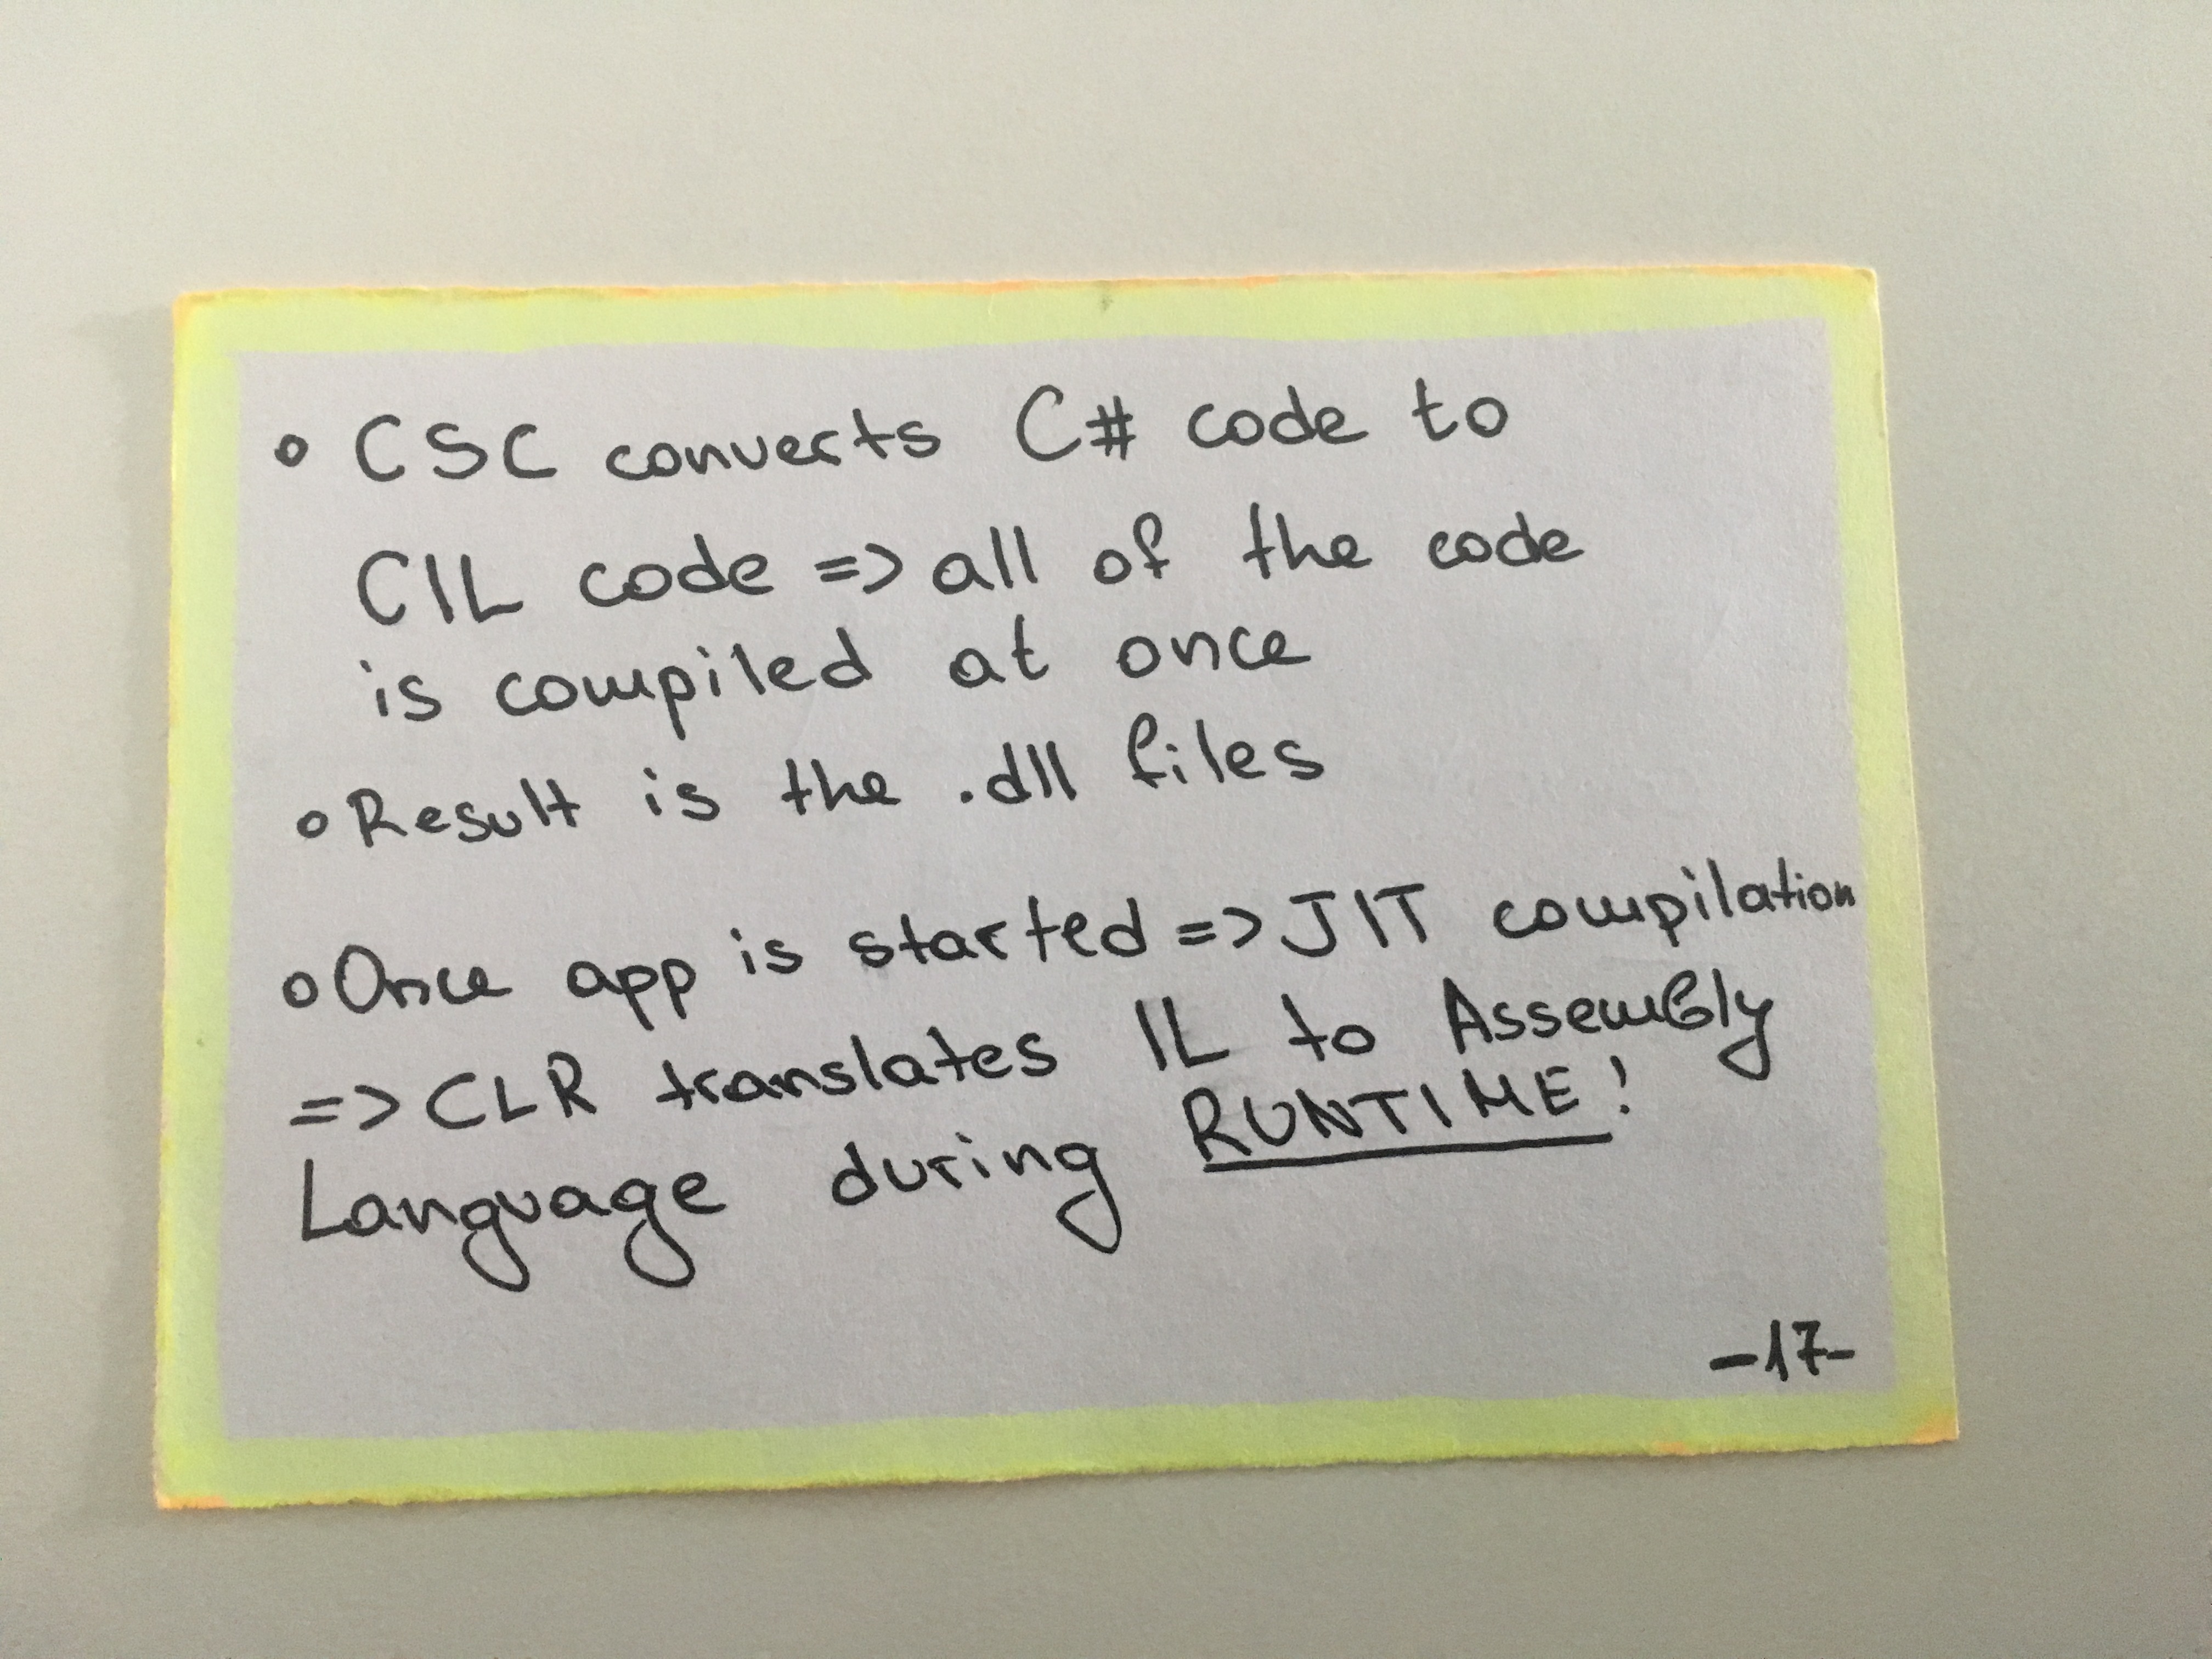 • CSC converts C# code to
CIL code => all of the code
is compiled at once
• Result is the .dll files
• Once app is started => JIT compilation
=> CLR translates IL to Assembly
Language during RUNTIME!
-17-